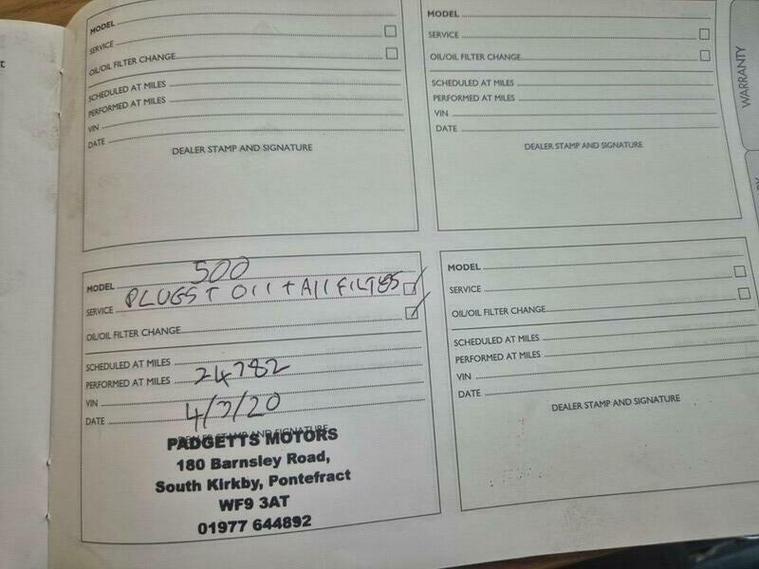 t
MODEL
SERVICE
OIL/OIL FILTER CHANGE
SCHEDULED AT MILES
PERFORMED AT MILES
VIN
DATE
DEALER STAMP AND SIGNATURE
MODEL
SERVICE
OIL/OIL FILTER CHANGE
SCHEDULED AT MILES
PERFORMED AT MILES
VIN
DATE
DEALER STAMP AND SIGNATURE
WARRANTY
MODEL 500
SERVICE PLUGS + OIl + All FILTERS
OIL/OIL FILTER CHANGE
SCHEDULED AT MILES
PERFORMED AT MILES 24782
VIN
DATE 4/7/20
DEALER STAMP AND SIGNATURE
PADGETTS MOTORS
180 Barnsley Road,
South Kirkby, Pontefract
WF9 3AT
01977 644892
MODEL
SERVICE
OIL/OIL FILTER CHANGE
SCHEDULED AT MILES
PERFORMED AT MILES
VIN
DATE
DEALER STAMP AND SIGNATURE